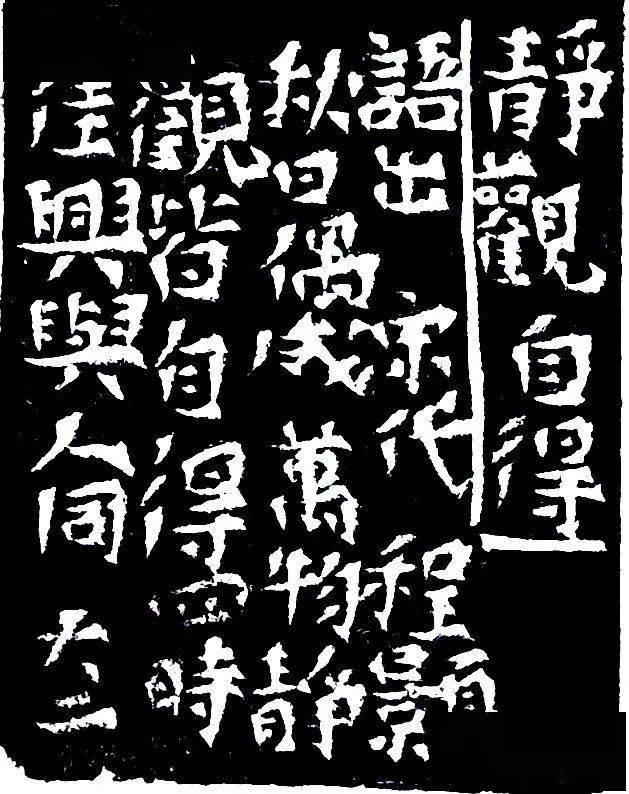 靜觀自得
語出 宋代 程顥
秋日偶成 萬物靜
觀皆自得四時
佳興與人同